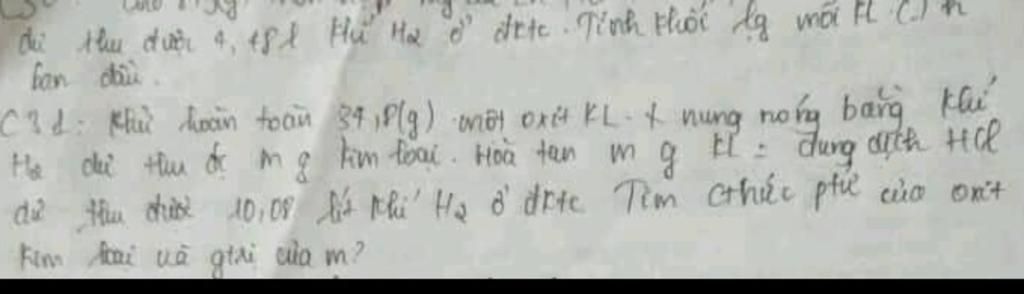 dư thu được 4,48l khí H2 ở đktc. Tính khối lg mỗi KL
ban đầu.
C32: Khử hoàn toàn 34,8(g) một oxit KL. + nung nóng bằng khí
H2 dư thu đc m g kim loại. Hoà tan m g KL = dung dịch HCl
dư thu được 10,08 lít khí H2 ở đktc Tìm cthức ptử của oxit
kim loại và gtrị của m?